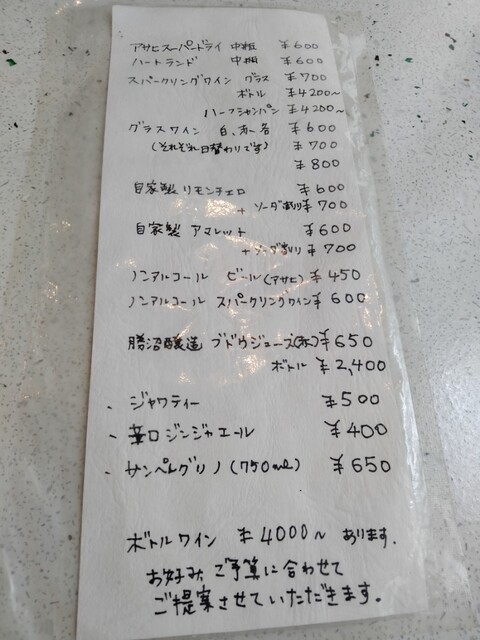 アサヒスーパードライ 中瓶 ¥600
ハートランド 中瓶 ¥600
スパークリングワイン グラス ¥700
ボトル ¥4200~
ハーフシャンパン ¥4200~
グラスワイン 白、赤、各 ¥600
(それぞれ日替わりです) ¥700
¥800
自家製 リモンチェロ ¥600
+ ソーダ割り ¥700
自家製 アマレット ¥600
+ソーダ割り ¥700
ノンアルコール ビール(アサヒ) ¥450
ノンアルコール スパークリングワイン ¥600
勝沼醸造 ブドウジュース(赤) ¥650
ボトル ¥2,400
- ジャワティー ¥500
- 辛口ジンジャエール ¥400
- サンペレグリノ(750ml) ¥650
ボトルワイン ¥4000~ あります.
お好み、ご予算に合わせて
ご提案させていただきます。